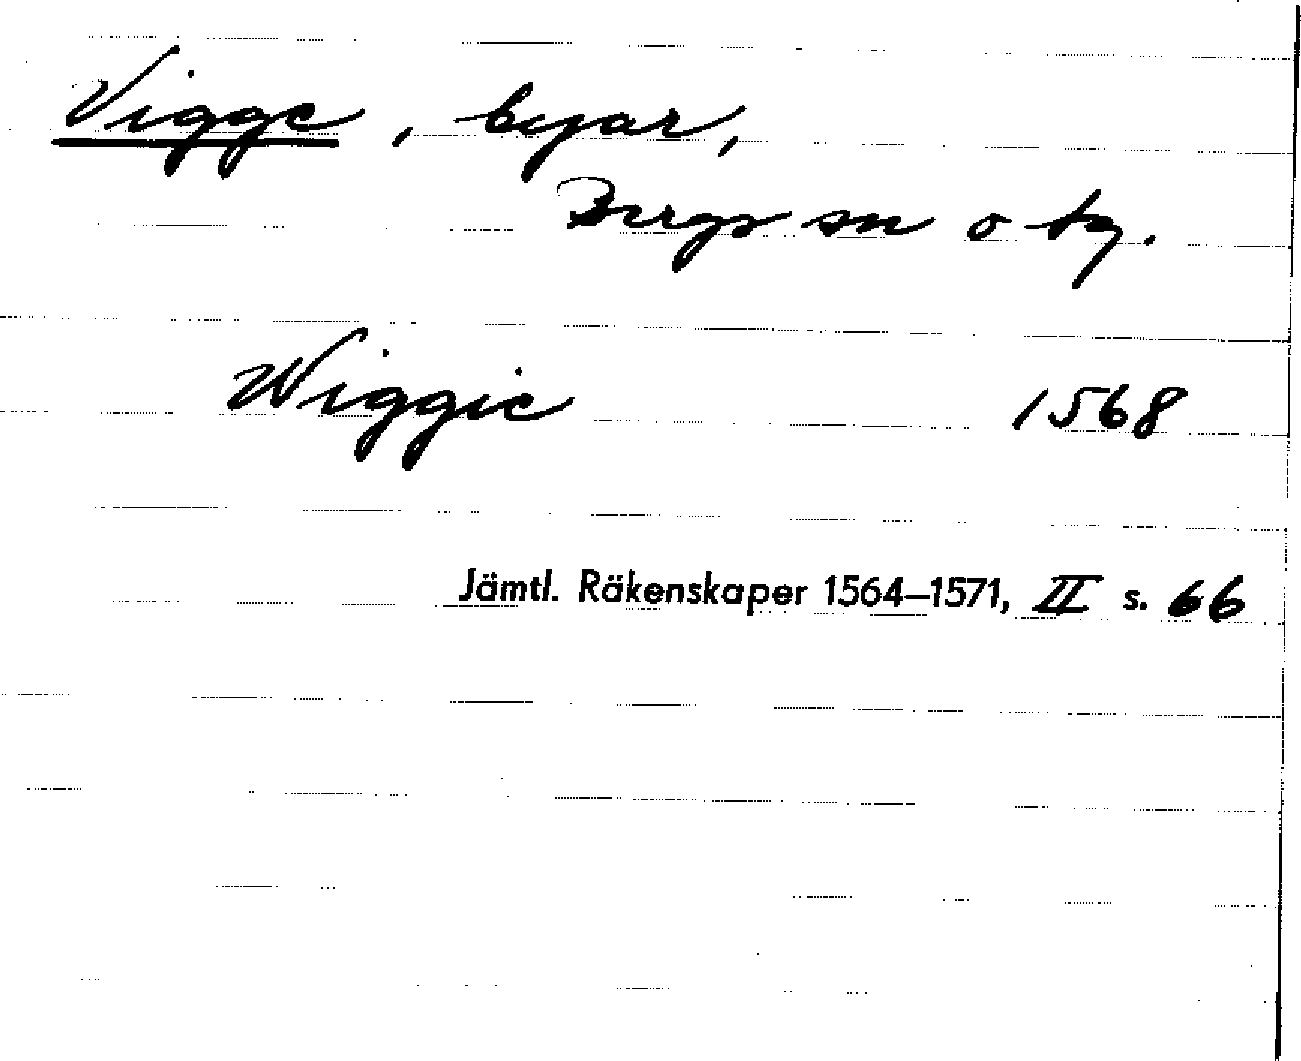 Vigge, byar,
Bergs sn o tg.
Wiggie 1568
Jämtl. Räkenskaper 1564–1571, II s. 66